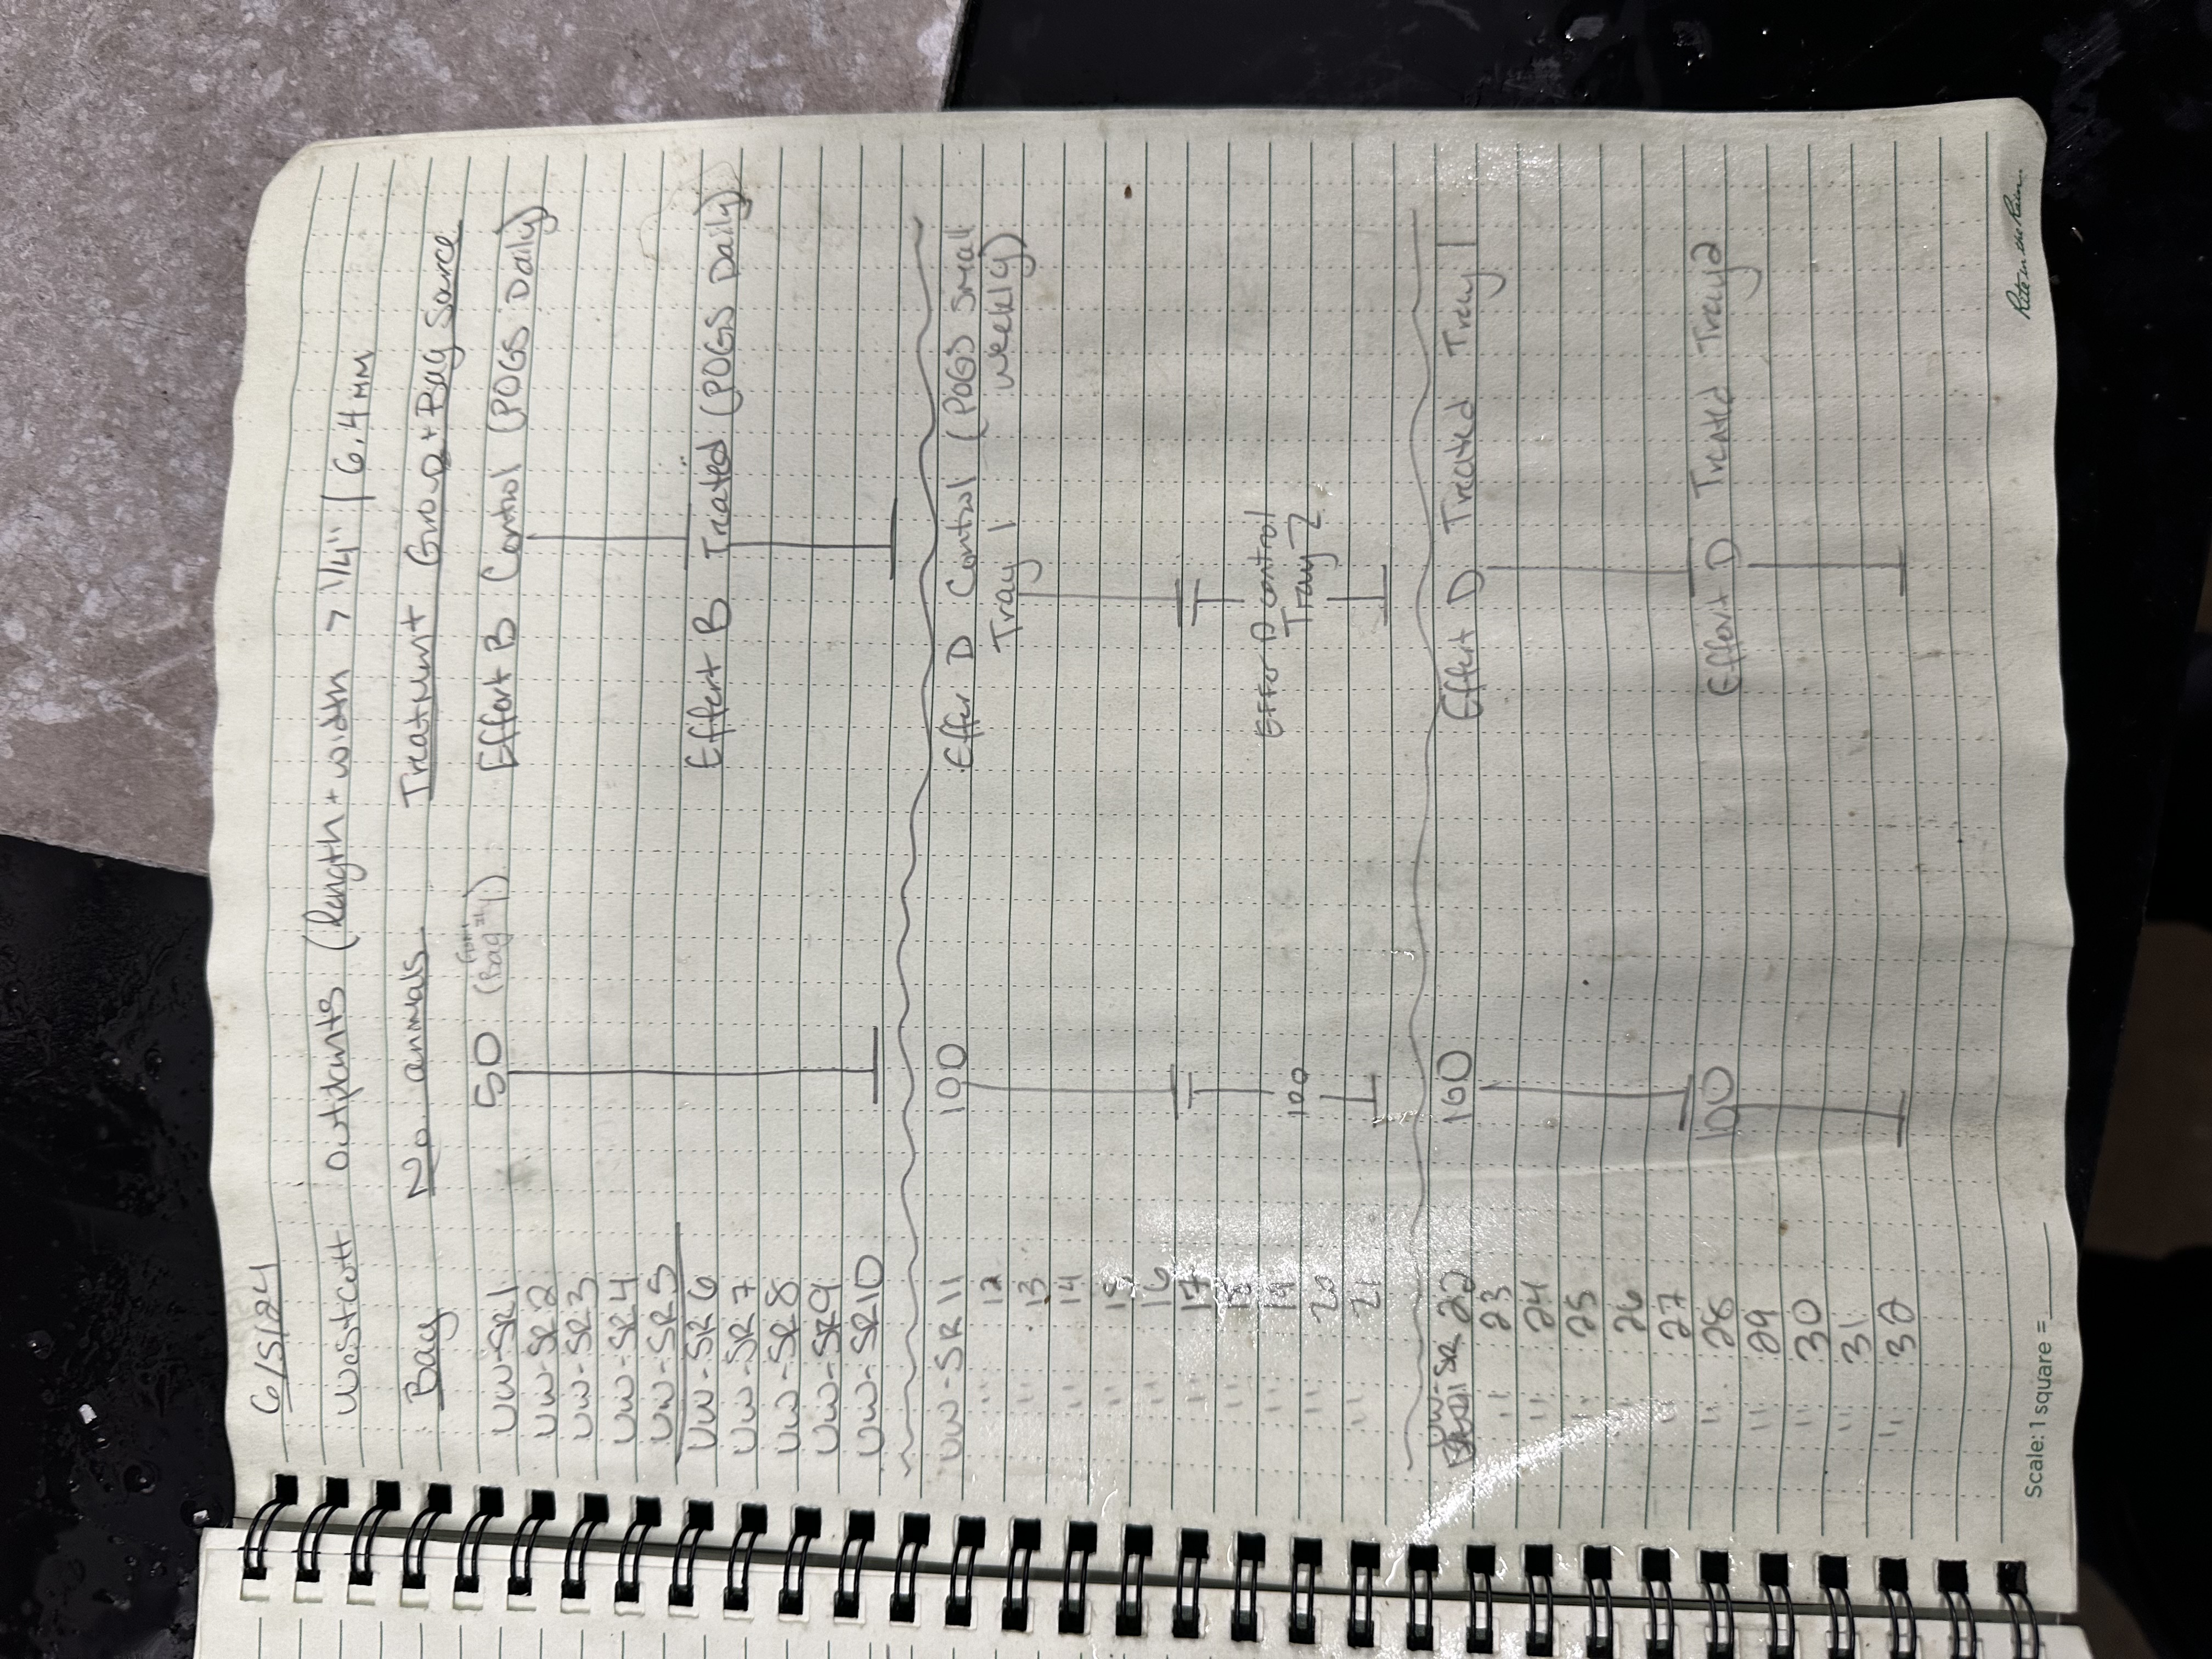 6/5/24
Westcott outplants (length + width > 1/4" / 6.4 mm
Bag No. animals Treatment Group + Bag Source
UW-SR1 50 (from Bag #1) Effort B Control (POGS Daily)
UW-SR2
UW-SR3
UW-SR4
UW-SR5
UW-SR6 Effort B Treated (POGS Daily)
UW-SR7
UW-SR8
UW-SR9
UW-SR10
UW-SR11 100 Effor D Control (POGS small
" 12 Tray 1 weekly)
" 13
" 14
" 15
" 16
" 17
" 18
" 19 Effor D control
" 20 100 Tray 2
" 21
UW-SR 22 100 Effort D Treated Tray 1
" 23
" 24
" 25
" 26
" 27
" 28 100 Effort D Treated Tray 2
" 29
" 30
" 31
" 32
Scale: 1 square =
Rite in the Rain